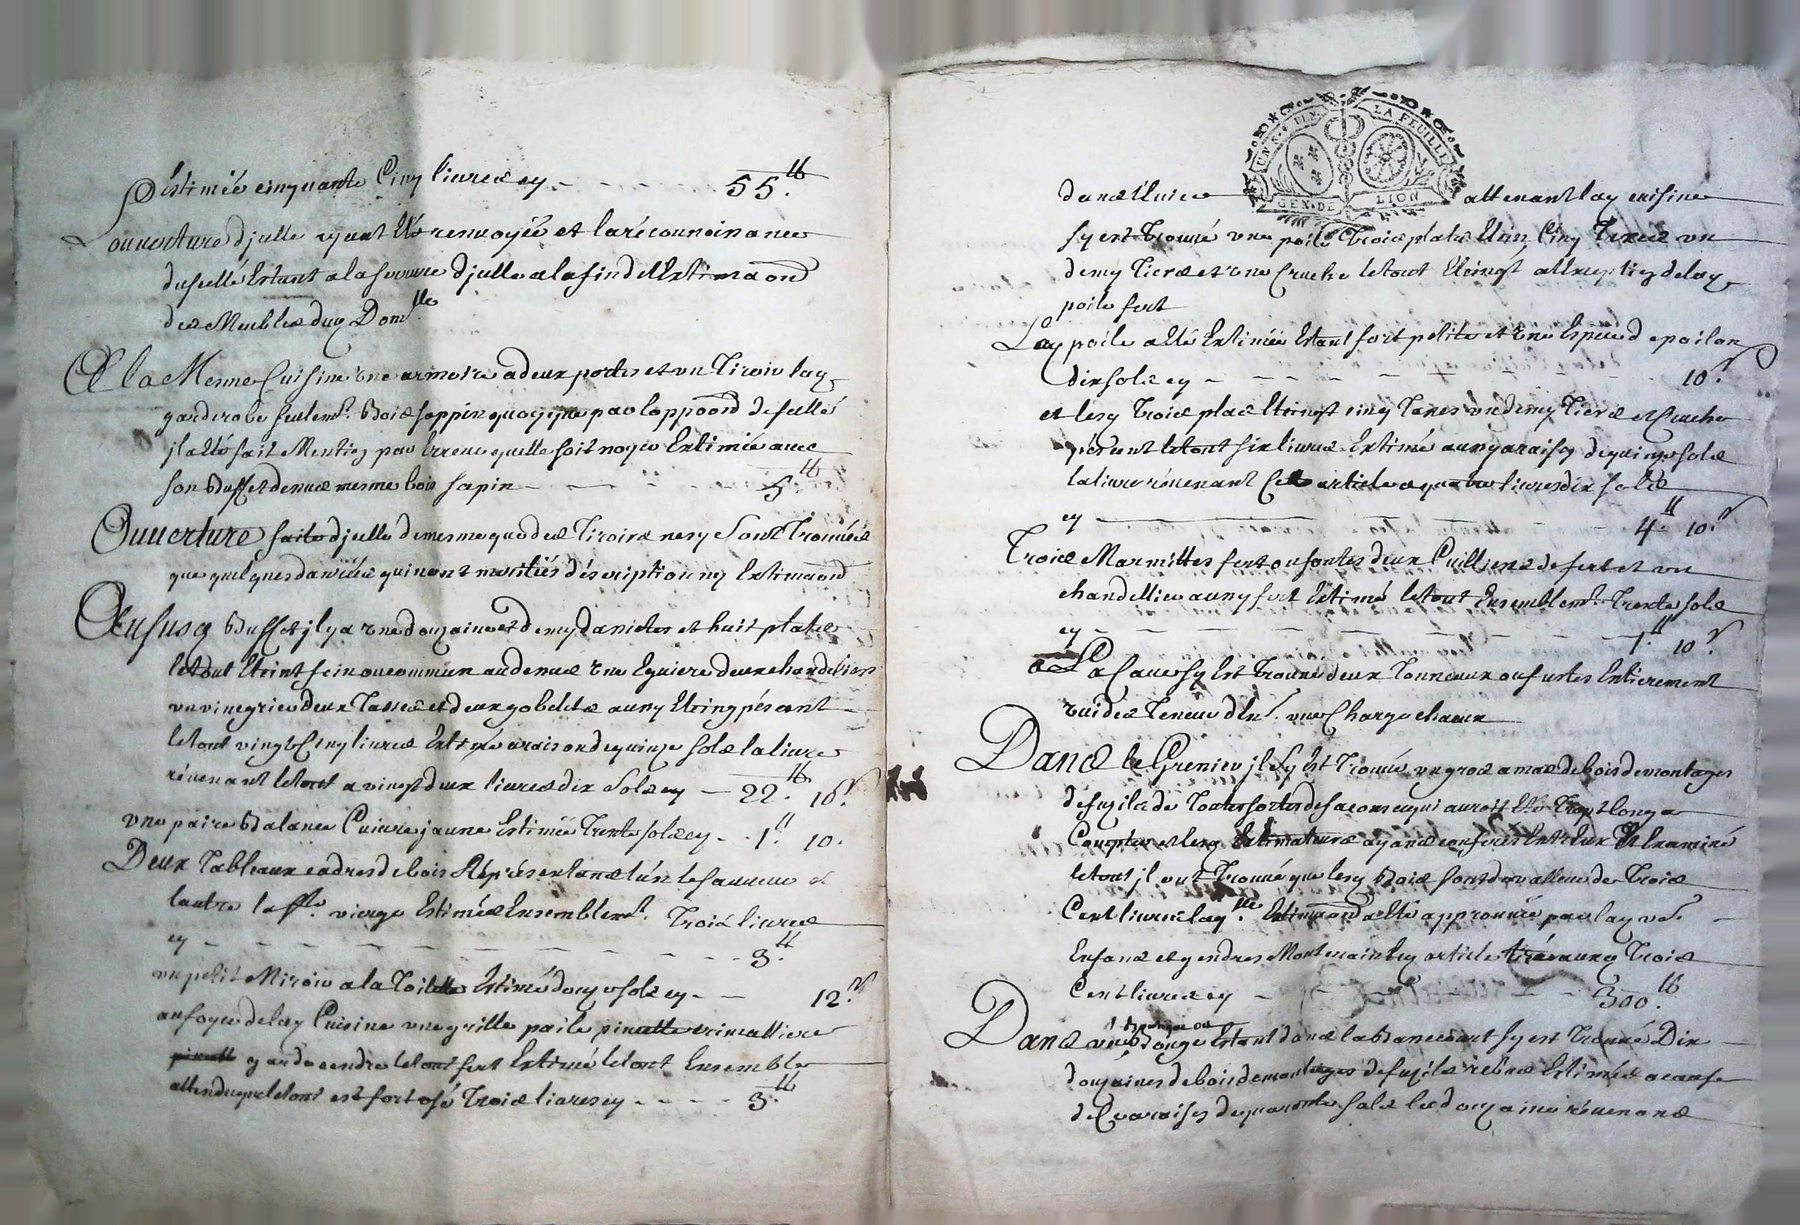 Estimée cinquante Cinq livres cy - - - - 55.tt
L'ouverture d'jcelle ayant Eté renvoyée et la réconnoissance
du scellé Estant a la serrure d'jcelle a la fin de l'Estimaōnd
des Meubles dud. Dom.lle
A la Mesme Cuisine une armoire a deux portes et un Tiroir lad.
garderobe seulem.t Bois sappin quoyque par l'appoond de scellé
jl a Eté fait Mention par Erreur quelle soit noyer Estimée avec
son Buffet dessus mesme bois sapin - - - - 5.tt
Ouverture faite d'jcelle de mesme que des Tiroirs ne s'y Sont Trouvées
que quelques danrées qui n'ont meritées déscription ny Estimaōnd
Au susd. Buffet jl y a une douzaine et demy d'assietes et huit plats
le tout Eteint fein ou commun au dessus une Eguiere deux chandeliers
un vinegrier deux Tasses et deux gobelets aussy Eteing pésant
le tout vingt Cinq livres Estimés a raison de quinze sols la livre
révenant le tout a vingt deux livres dix Sols cy — 22.tt 10.s
une paire Balance Cuivre jaune Estimée Trente sols cy - - 1.tt 10.
Deux Tableaux cadres de bois Réprésentans l'un le sauveur et
l'autre la s.te vierge Estimées Ensemblem.t Trois livres
cy - - - - - - - - - 3.tt
un petit Miroir a la Toilette Estimé douze sols cy - - 12.s
au foyer de lad. Cuisine une grille paile pincette crimalliere
garde cendre le tout fert Estimé le tout Ensemble
attendu que le tout est fort osé Trois livres cy - - - - 3.tt
UN S. DIX LA FEUILLE
GEN. DE LION
dans attenant lad. cuisine
s'y est Trouvé une poile Trois plats Etein Cinq un
demy et une Cruche le tout Eteingt a l'exeption de lad.
poile fert
Lad. poile a Eté Estimée Estant fort petite et une Espece de poilon
dix sols cy - - - - - - 10.s
et lesd. Trois plas Eteingt cinq un demy et Cruche
pésant le tout six livres Estimé aussy a raison de quinze sols
la livre révenant Cet article a quatre livres dix sols
cy - - - - - 4.tt 10.s
Trois Marmittes fert ou fontes deux Cuillieres de fert et un
chandellier aussy fert Estimé le tout Ensemblem.t Trente sols
cy - - - - - - - 1.tt 10.s
a La Cave s'y Est Trouvé deux Tonneaux ou fustes Entierement
vuides Teneur d'En.t une Charge chacun
Dans le Grenier jl s'y Est Trouvé un gros amas de bois de montages
de fuzils de Toutes sortes de facons ce qui auroit Eté Trop long a
Compter et lesd. Estimateurs ayans conferés Entr'Eux Et Examiné
le tout jl ont Trouvé que lesd. Bois sont de valleur de Trois
Cent livres laq.lle Estimaōnd a Eté approuvée par lad. v.e
Enfans et gendres Montemain led. article tiré aux d. Trois
Cent livres cy - - - - - 300.tt
Dans Estant dans la Basse court s'y est Trouvé Dix
douzaines de bois de montages de fuzils Estimées a cause
de a raison de quarante sols la douzaine révenans